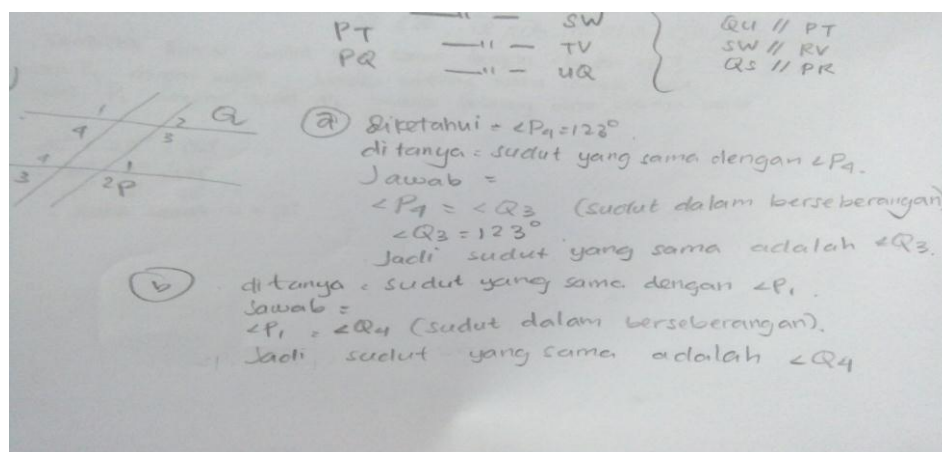 PT — " — SW } QU // PT
PQ — " — TV SW // RV
— " — UQ QS // PR
1 2 Q
4 3
4 1
3 2 P
a diketahui = <P4 = 123°
ditanya = sudut yang sama dengan <P4.
Jawab =
<P4 = <Q3 (sudut dalam berseberangan)
<Q3 = 123°
Jadi sudut yang sama adalah <Q3.
b ditanya = sudut yang sama dengan <P1.
Jawab =
<P1 = <Q4 (sudut dalam berseberangan).
Jadi sudut yang sama adalah <Q4